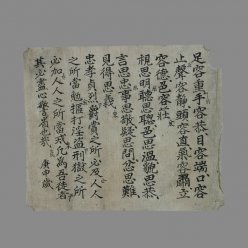 足容重手容恭目容端口容
止聲容靜頭容直氣容肅立
容德色容莊
視思明聽思聰色思溫貌思恭
言思忠事思敬疑思問忿思難
見得思義
忠孝貞烈爵賞之所必及人人
之所當勉打淫盜刑獄之所
必加人人之所當戒凡爲吾徒者
其必盡心警省也哉 庚申歲